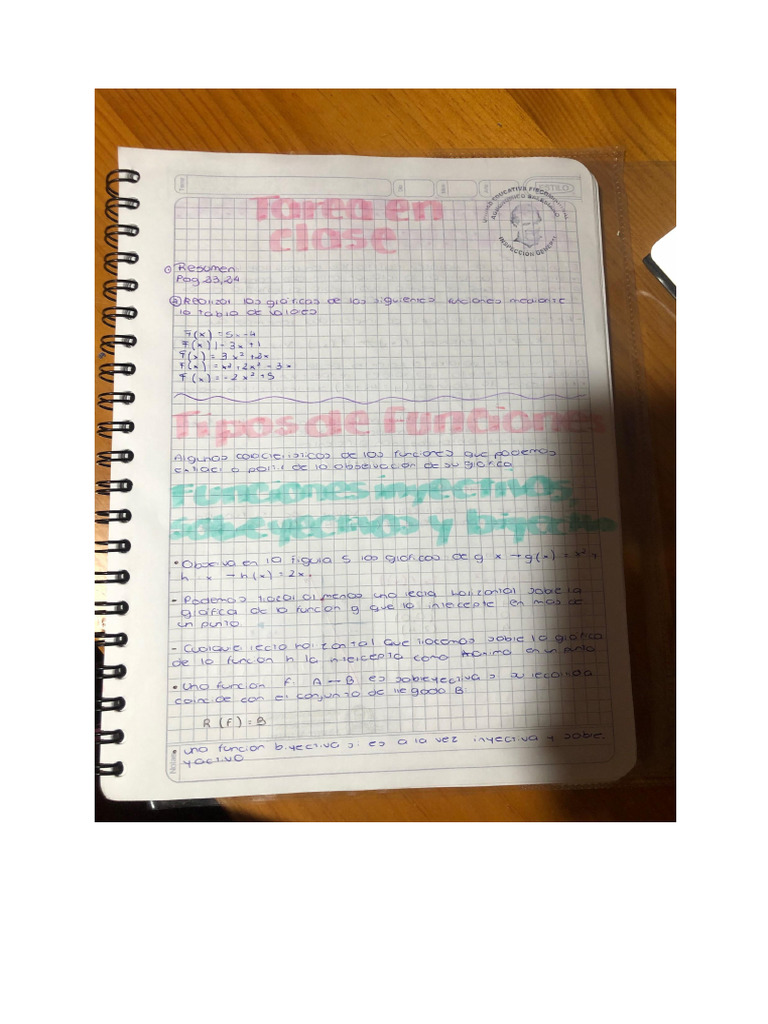 Tema:
ESTILO
UNIDAD EDUCATIVA FISCOMISIONAL
INSPECCION GENERAL
Tarea en
clase
① Resumen
Pag 23,24
② Realizar las gráficas de las siguientes funciones mediante
la tabla de valores
F(x) = 5x-4
F(x) = 3x+1
F(x) = 3x²+2x
F(x) = x³+2x²-3x
F(x) = -2x²+5
Tipos de Funciones
Algunas características de las funciones que podemos
extraer a partir de la observación de su gráfica
Funciones inyectivas,
sobreyectivas y biyectiva
• Observa en la figura 5 las gráficas de g x → g(x) = x² y
h x → h(x) = 2x.
- Podemos trazar al menos una recta horizontal sobre la
gráfica de la función g que la intercepte en mas de
un punto.
- Cualquier recta horizontal que tracemos sobre la gráfica
de la función h la intercepta como máximo en un punto
• Una función f: A → B es sobreyectiva si su recorrido
coincide con el conjunto de llegada B:
R(F) = B
• una función biyectiva si es a la vez inyectiva y sobre
yectiva
Notas